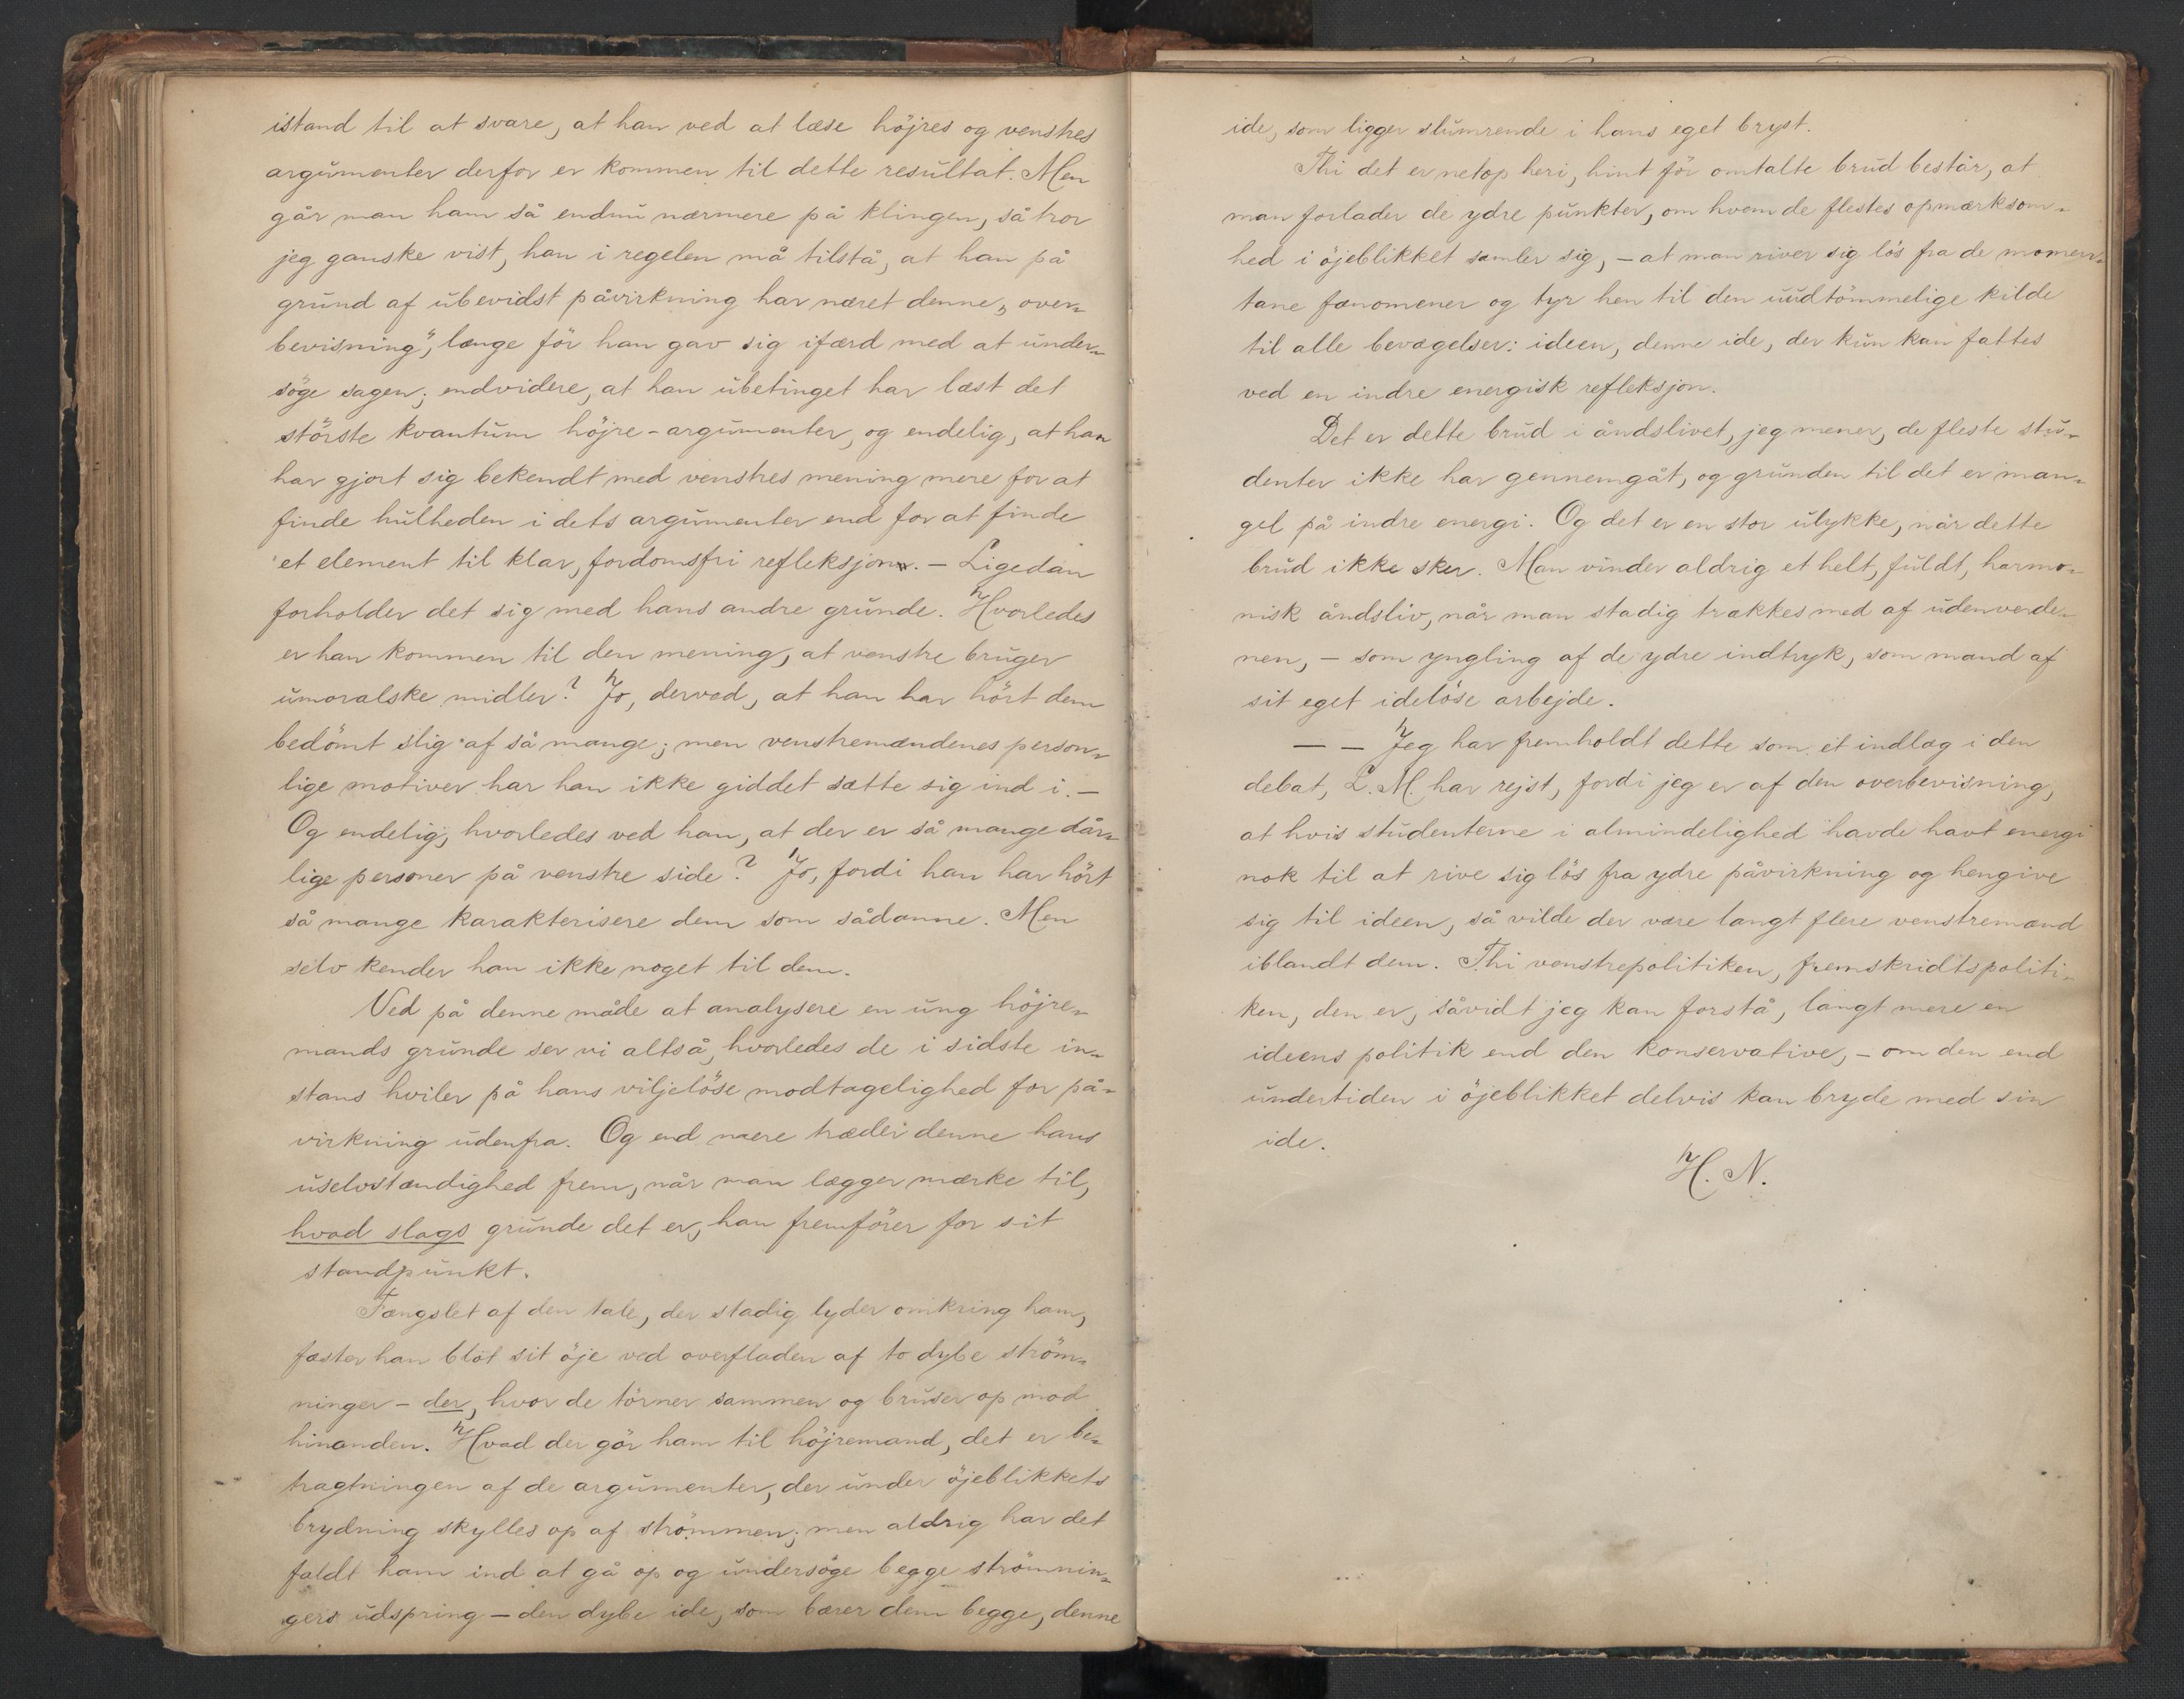 istand til at svare, at han ved at læse höjres og venstres
argumenter derfor er kommen til dette resultat. Men
går man ham så endnu nærmere på klingen, så tror
jeg ganske vist, han i regelen må tilstå, at han på
grund af ubevidst påvirkning har næret denne „over-
bevisning“, længe för han gav sig ifærd med at under-
söge sagen; endvidere, at han ubetinget har læst det
störste kvantum höjre-argumenter, og endelig, at han
har gjort sig bekendt med venstres mening mere for at
finde hulheden i dets argumenter end for at finde
et element til klar, fordomsfri refleksjon. – Ligedan
forholder det sig med hans andre grunde. Hvorledes
er han kommen til den mening, at venstre bruger
umoralske midler? Jo, derved, at han har hört dem
bedömt slig af så mange; men venstremændenes person-
lige motiver har han ikke giddet sætte sig ind i. –
Og endelig, hvorledes ved han, at der er så mange dår-
lige personer på venstre side? Jo, fordi han har hört
så mange karakterisere dem som sådanne. Men
selv kender han ikke noget til dem.
Ved på denne måde at analysere en ung höjre-
mands grunde ser vi altså, hvorledes de i sidste in-
stans hviler på hans viljelöse modtagelighed for på-
virkning udenfra. Og end mere træder denne hans
uselvstændighed frem, når man lægger mærke til,
hvad slags grunde det er, han fremförer for sit
standpunkt.
Fængslet af den tale, der stadig lyder omkring ham,
fæster han blot sit öje ved overfladen af to dybe ström-
ninger – der, hvor de törner sammen og bruser op mod
hinanden. Hvad der gör ham til höjremand, det er be-
tragtningen af de argumenter, der under öjeblikkets
brydning skylles op af strömmen; men aldrig har det
faldt ham ind at gå op og undersöge begge strömnin-
gers udspring – den dybe ide, som bærer dem begge, denne
ide, som ligger slumrende i hans eget bryst.
Thi det er netop heri, hint för omtalte brud består, at
man forlader de ydre punkter, om hvem de flestes opmærksom-
hed i öjeblikket samler sig, – at man river sig lös fra de momen-
tane fænomener og tyr hen til den uudtömmelige kilde
til alle bevægelser: ideen, denne ide, der kun kan fattes
ved en indre energisk refleksjon.
Det er dette brud i åndslivet, jeg mener, de fleste stu-
denter ikke har gennemgåt, og grunden til det er man-
gel på indre energi. Og det er en stor ulykke, når dette
brud ikke sker. Man vinder aldrig et helt, fuldt, harmo-
nisk åndsliv, når man stadig trækkes med af udenverde-
nen, – som yngling af de ydre indtryk, som mand af
sit eget idelöse arbejde.
– – Jeg har fremholdt dette som et indlæg i den
debat, L. M. har rejst, fordi jeg er af den overbevisning,
at hvis studenterne i almindelighed havde havt energi
nok til at rive sig lös fra ydre påvirkning og hengive
sig til ideen, så vilde der være langt flere venstremænd
iblandt dem. Thi venstrepolitiken, fremskridtspoliti-
ken, den er, såvidt jeg kan forstå, langt mere en
ideens politik end den konservative, – om den end
undertiden i öjeblikket delvis kan bryde med sin
ide.
H. N.